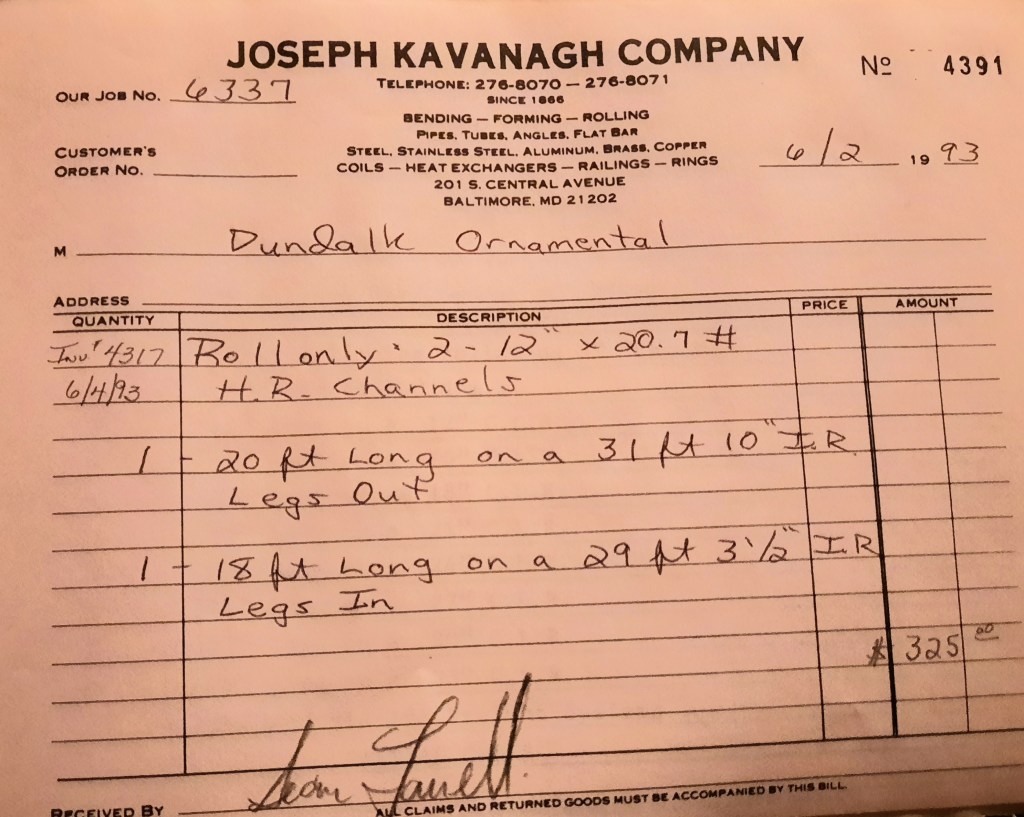 JOSEPH KAVANAGH COMPANY
Nº 4391
TELEPHONE: 276-8070 — 276-8071
OUR JOB NO. 6337
SINCE 1866
BENDING — FORMING — ROLLING
PIPES, TUBES, ANGLES, FLAT BAR
CUSTOMER'S
ORDER NO.
STEEL, STAINLESS STEEL, ALUMINUM, BRASS, COPPER
6/2 1993
COILS — HEAT EXCHANGERS — RAILINGS — RINGS
201 S. CENTRAL AVENUE
BALTIMORE, MD 21202
M Dundalk Ornamental
ADDRESS
QUANTITY DESCRIPTION PRICE AMOUNT
Inv # 4317 Roll only: 2 - 12" x 20.7 #
6/4/93 H.R. Channels
1 - 20 ft Long on a 31 ft 10" I.R.
Legs Out
1 - 18 ft Long on a 29 ft 3 1/2" I.R
Legs In
$ 325 00
RECEIVED BY
ALL CLAIMS AND RETURNED GOODS MUST BE ACCOMPANIED BY THIS BILL.